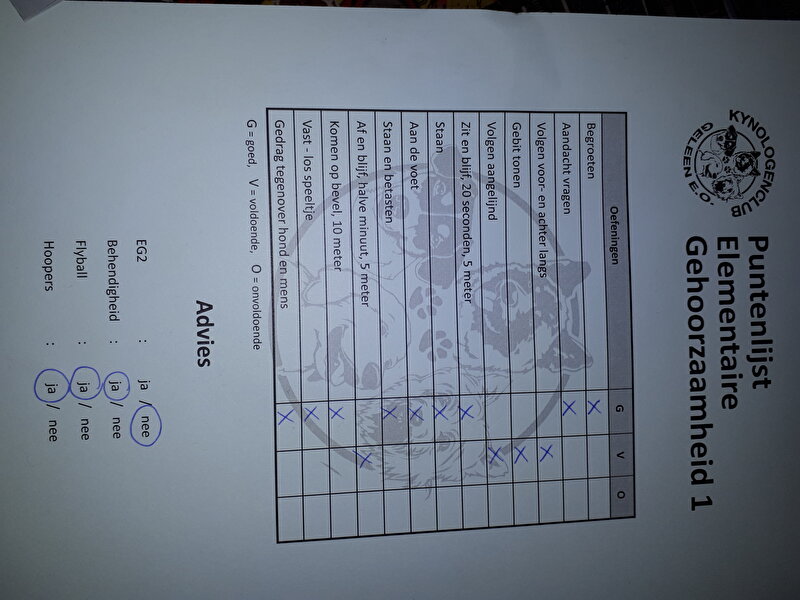 KYNOLOGENCLUB
GELEEN E.O.
Puntenlijst
Elementaire
Gehoorzaamheid 1
Oefeningen G V O
Begroeten X
Aandacht vragen X
Volgen voor- en achter langs X
Gebit tonen X
Volgen aangelijnd X
Zit en blijf, 20 seconden, 5 meter X
Staan X
Aan de voet X
Staan en betasten X
Af en blijf, halve minuut, 5 meter X
Komen op bevel, 10 meter X
Vast - los speeltje X
Gedrag tegenover hond en mens X
G = goed, V = voldoende, O = onvoldoende
Advies
EG2 : ja / nee
Behendigheid : ja / nee
Flyball : ja / nee
Hoopers : ja / nee